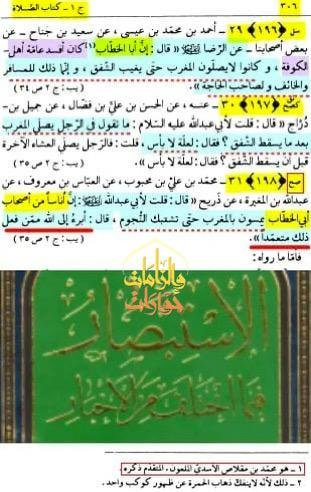 ٣٠٦ ج ١ - كتاب الصّلاة
سل ﴿١٩٦﴾ ٢٩ - أحمد بن محمّد بن عيسى ، عن سعيد بن جناح - عن
بعض أصحابنا - عن الرّضا عليه السلام « قال : إنّ أبا الخطّاب (١) كان أفسد عامّة أهل
الكوفة ، و كانوا لا يصلّون المغرب حتّى يغيب الشّفق ، و إنّما ذلك للمسافر
والخائف و لصاحب الحاجة » . (يب: ج ٢ ص ٣٤)
﴿١٩٧﴾ ٣٠ - عنه ، عن الحسن بن عليّ بن فضّال ، عن جميل بن -
درّاج « قال : قلت لأبي عبدالله عليه السّلام : ما تقول في الرّجل يصلّي المغرب
بعد ما يسقط الشّفق ؟ فقال : لعلّة لا بأس ، قلت : فالرّجل يصلّي العشاء الآخرة
قبل أن يسقط الشّفق ؟ فقال : لعلّة لا بأس » . (يب: ج ٢ ص ٣٥)
صح ﴿١٩٨﴾ ٣١ - محمّد بن عليّ بن محبوب ، عن العبّاس بن معروف ، عن
عبدالله بن المغيرة ، عن ذريح « قال : قلت لأبي عبدالله عليه السلام : إنّ أُناساً من أصحاب
أبي الخطّاب يمسون بالمغرب حتّى تشتبك النّجوم ، قال : أبرء إلى الله ممّن فعل
ذلك متعمّداً » . (يب: ج ٢ ص ٣٥)
فأمّا ما رواه :
الاستبصار
فيما اختلف من الأخبار
١ - هو محمّد بن مقلاص الأسديّ الملعون ، المتقدم ذكره .
٢ - ذلك لأنّه لا ينفكّ ذهاب الحمرة عن ظهور كوكب واحد .